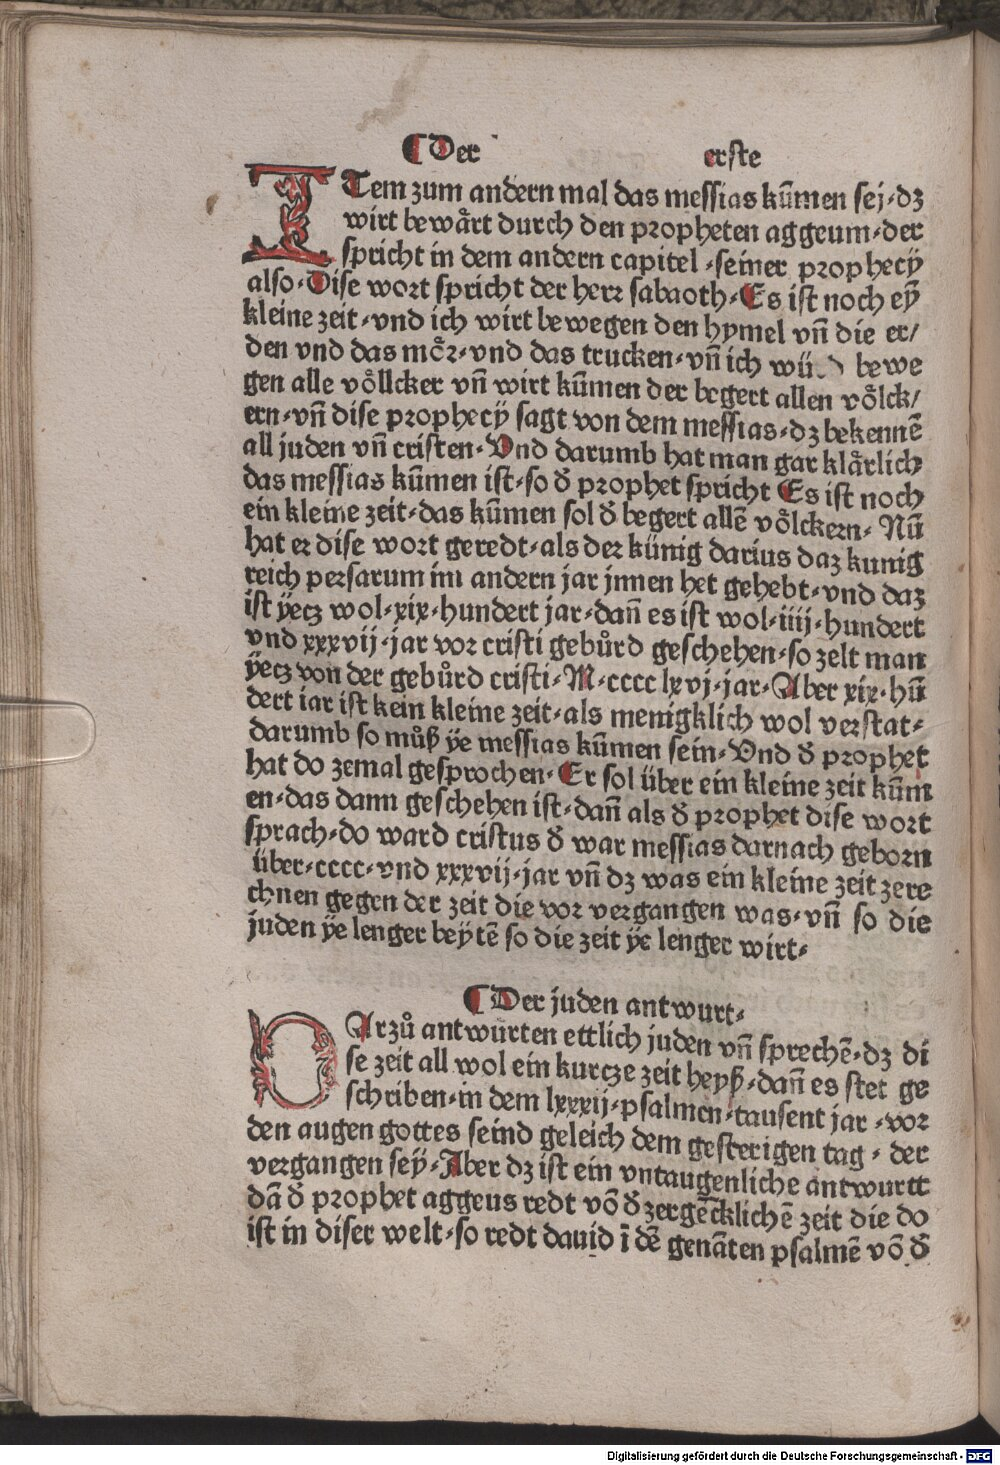 ¶ Der erste
ITem zum andern mal das messias kūmen sej· dʒ
wirt bewaͤrt durch den propheten aggeum· der
spricht in dem andern capitel· seiner prophecÿ
also· Dise wort spricht der herr sabaoth· Es ist noch eÿ
kleine zeit· vnd ich wirt bewegen den hymel vn̄ die er/
den vnd das moͤr· vnd das trucken· vn̄ ich bewe
gen alle voͤllcker vn̄ wirt kūmen der begert allen voͤlck/
ern· vn̄ dise prophecÿ sagt von dem messias· dʒ bekennē
all juden vn̄ cristen· Vnd darumb hat man gar klaͤrlich
das messias kūmen ist· so đ prophet spricht Es ist noch
ein kleine zeit· das kūmen sol đ begert allē voͤlckern· Nū
hat er dise wort geredt· als der künig darius daz kunig
reich persarum im andern jar jnnen het gehebt· vnd daz
ist ÿecz wol· xix· hundert jar· dan̄ es ist wol· iiij· hundert
vnd xxxvij· jar vor cristi gebůrd geschehen· so zelt man
ÿecz von der gebůrd cristi· M· cccc lxvj· jar· Aber xix· hū
dert iar ist kein kleine zeit· als menigklich wol verstat·
darumb so můß ÿe messias kūmen sein· Vnd đ prophet
hat do zemal gesprochen· Er sol über ein kleine zeit kūm
en· das dann geschehen ist· dan̄ als đ prophet dise wort
sprach· do ward cristus đ war messias darnach geborn
über· cccc· vnd xxxvij· jar vn̄ dʒ was ein kleine zeit zere
chnen gegen der zeit die vor vergangen was· vn̄ so die
juden ÿe lenger beÿtē so die zeit ÿe lenger wirt·
¶ Der juden antwurt·
DArzů antwürten ettlich juden vn̄ sprechē· dʒ di
se zeit all wol ein kurcze zeit heyß· dan̄ es stet ge
schriben· in dem lxxxij· psalmen· tausent jar· vor
den augen gottes seind geleich dem gesterigen tag· der
vergangen seÿ· Aber dʒ ist ein vntaugenliche antwurtt
dā đ prophet aggeus redt vō đ zergēcklichē zeit die do
ist in diser welt· so redt dauid ī dē genāten psalmē vō đ
Digitalisierung gefördert durch die Deutsche Forschungsgemeinschaft - DFG